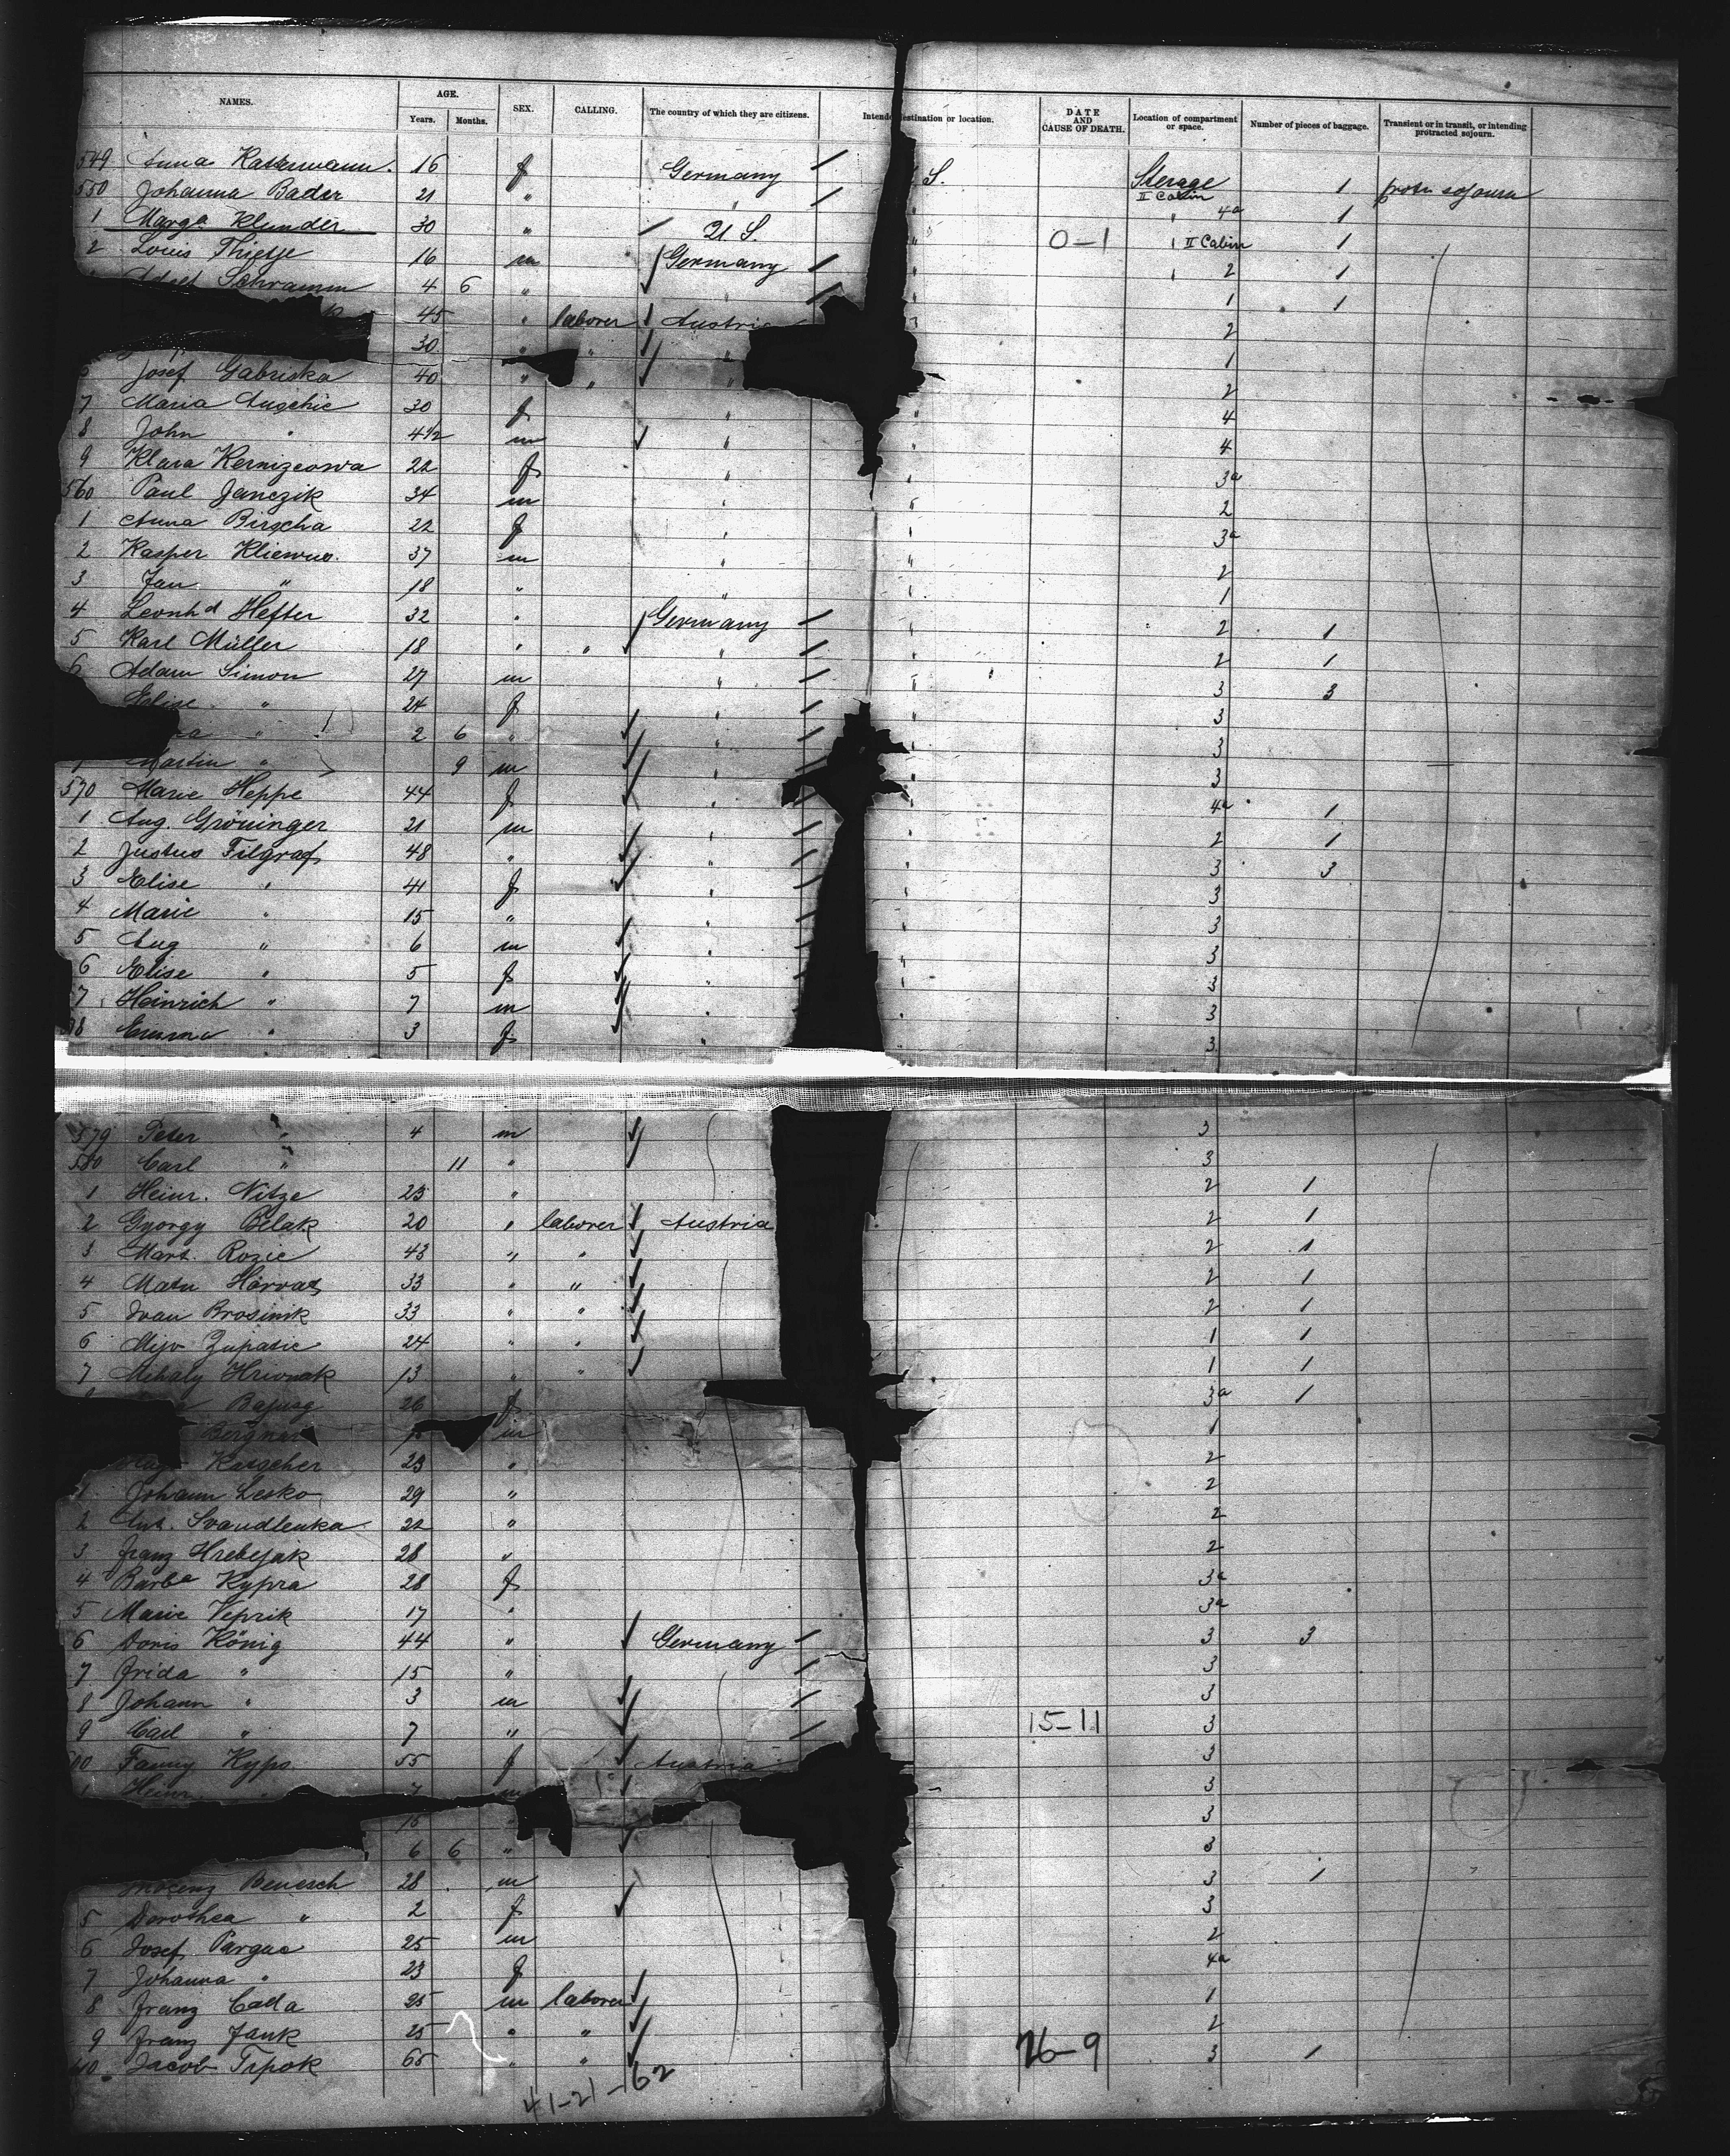 NAMES. AGE. SEX. CALLING. The country of which they are citizens. Intended destination or location. DATE AND CAUSE OF DEATH. Location of compartment or space. Number of pieces of baggage. Transient or in transit, or intending protracted sojourn.
Years. Months.
549 Anna 16 f Germany / S. Sterage 1 protr sojourn
550 Johanna Bader 21 " " / " II Cabin 4a 1
1 Marga Klunder 30 " / U S. " 0-1 " II Cabin 1
2 Louis Thietje 16 m / Germany / " 2 1
Adolf Schramm 4 6 " " / " 1 1
45 " laborer Austria 2
30 " " " 1
6 Josef Gabriska 40 " " " 2
7 Maria 30 f " " 4
8 John " 4 1/2 m " " 4
9 Klara 22 f " " 3a
560 Paul Janczik 34 m " " 2
1 Anna Birscha 22 f " " 3a
2 Kasper 37 m " " 2
3 Jan " 18 " " " 1
4 Leonhd Hefter 32 " / Germany / " 2 1
5 Karl Müller 18 " " " / " 2 1
6 Adam Simon 27 m " / " 3 3
Elise " 24 f " / " 3
a " 2 6 " " / " 3
Martin " 9 m " / " 3
570 Marie Heppe 44 f " / " 4a 1
1 Aug. Gröninger 21 m " / " 2 1
2 Justus Filgraf 48 " " / " 3 3
3 Elise " 41 f " / " 3
4 Marie " 15 " " / " 3
5 Aug " 6 m " / " 3
6 Elise " 5 f " / " 3
7 Heinrich " 7 m " " 3
8 Emma " 3 f " " 3
579 Peter " 4 m 3
580 Carl " 11 " 3
1 Heinr. Nitze 23 " 2 1
2 Gyorgy Belak 20 " laborer Austria 2 1
3 Mart. Rozic 43 " " 2 1
4 Horvat 33 " " 2 1
5 Ivan Brosinik 33 " " 2 1
6 Mijo Zupasic 24 " " 1 1
7 Mihaly Hrivnak 13 " " 1 1
26 f 3a 1
m 1
23 " 2
1 Johann Lesko 29 " 2
2 Ant. Svandlenka 22 " 2
3 Franz Hrebejak 28 " 2
4 Barba Kypra 28 f 3a
5 Marie Veprik 17 " 3a
6 Doris König 44 " Germany / 3 3
7 Frida " 15 " / 3
8 Johann " 3 m / 3
9 Carl " 7 " / 15-11 3
00 Fanny Kypo 55 f Austria 3
Heinr. " 7 m 3
16 " 3
6 6 " 3
Benesch 28 m 3 1
5 Dorothea " 2 f 3
6 Josef Pargac 25 m 2
7 Johanna " 23 f 4a
8 Franz Cada 25 m laborer 1
9 Franz Jank 25 " " 26-9 2
10 Jacob Trpok 65 " " 3 1
41-21-62